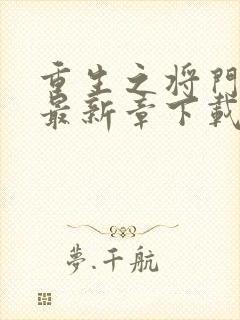 重生之将門
最新章下載
夢.千航